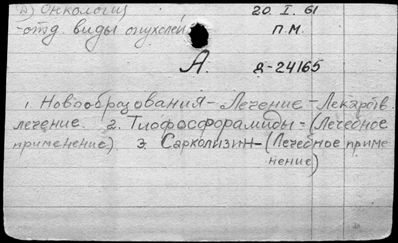 Д) Онкология 20. I. 61
-отд. виды опухолей П.М.
А. Д-24165
1. Новообразования - Лечение - Лекарств.
лечение. 2. Тиофосфорамиды - (Лечебное
применение) 3. Сарколизин - (Лечебное приме
нение)